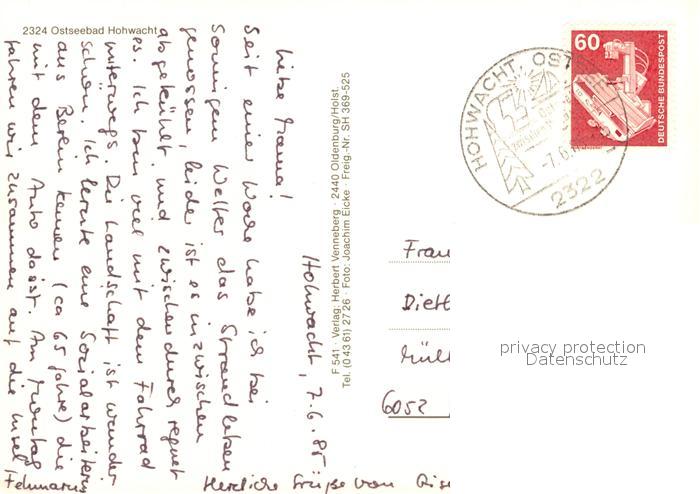 2324 Ostseebad Hohwacht
Hohwacht, 7.6.85
Liebe Mama!
Seit einer Woche habe ich bei
sonnigem Wetter das Strandleben
genossen, leider ist es inzwischen
abgekühlt und zwischendurch regnet
es. Ich bin viel mit dem Fahrrad
unterwegs. Die Landschaft ist wunder
schön. Ich lernte eine Sozialarbeiterin
aus Berlin kennen (ca 65 Jahre) die
mit dem Auto da ist. Am Montag
fahren wir zusammen auf die Insel
Fehmarn
Herzliche Grüße von
F 541 · Verlag: Herbert Venneberg · 2440 Oldenburg/Holst.
Tel. (0 43 61) 27 26 · Foto: Joachim Eicke · Freig.-Nr. SH 369-525
60
DEUTSCHE BUNDESPOST
HOHWACHT, OST
-7.6.
2322
Frau
6052
privacy protection
Datenschutz